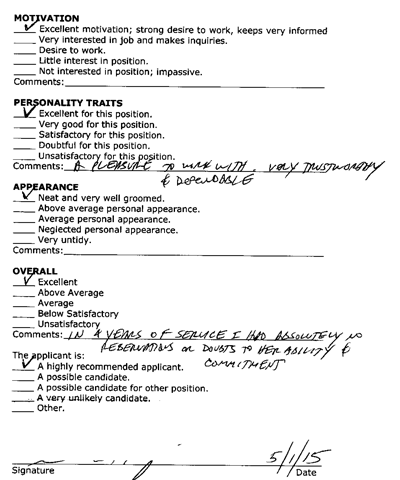 MOTIVATION
✓ Excellent motivation; strong desire to work, keeps very informed
____ Very interested in job and makes inquiries.
____ Desire to work.
____ Little interest in position.
____ Not interested in position; impassive.
Comments:
PERSONALITY TRAITS
✓ Excellent for this position.
____ Very good for this position.
____ Satisfactory for this position.
____ Doubtful for this position.
____ Unsatisfactory for this position.
Comments: A PLEASURE TO WORK WITH. VERY TRUSTWORTHY
& DEPENDABLE
APPEARANCE
✓ Neat and very well groomed.
____ Above average personal appearance.
____ Average personal appearance.
____ Neglected personal appearance.
____ Very untidy.
Comments:
OVERALL
✓ Excellent
____ Above Average
____ Average
____ Below Satisfactory
____ Unsatisfactory
Comments: IN 4 YEARS OF SERVICE I HAD ABSOLUTELY NO
RESERVATIONS OR DOUBTS TO HER ABILITY &
COMMITMENT
The applicant is:
✓ A highly recommended applicant.
____ A possible candidate.
____ A possible candidate for other position.
____ A very unlikely candidate.
____ Other.
5/1/15
Signature Date